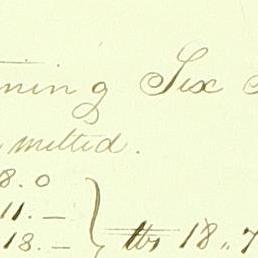 ning Six
mitted.
8.0
11. —
18. — } lbs 18,, 7